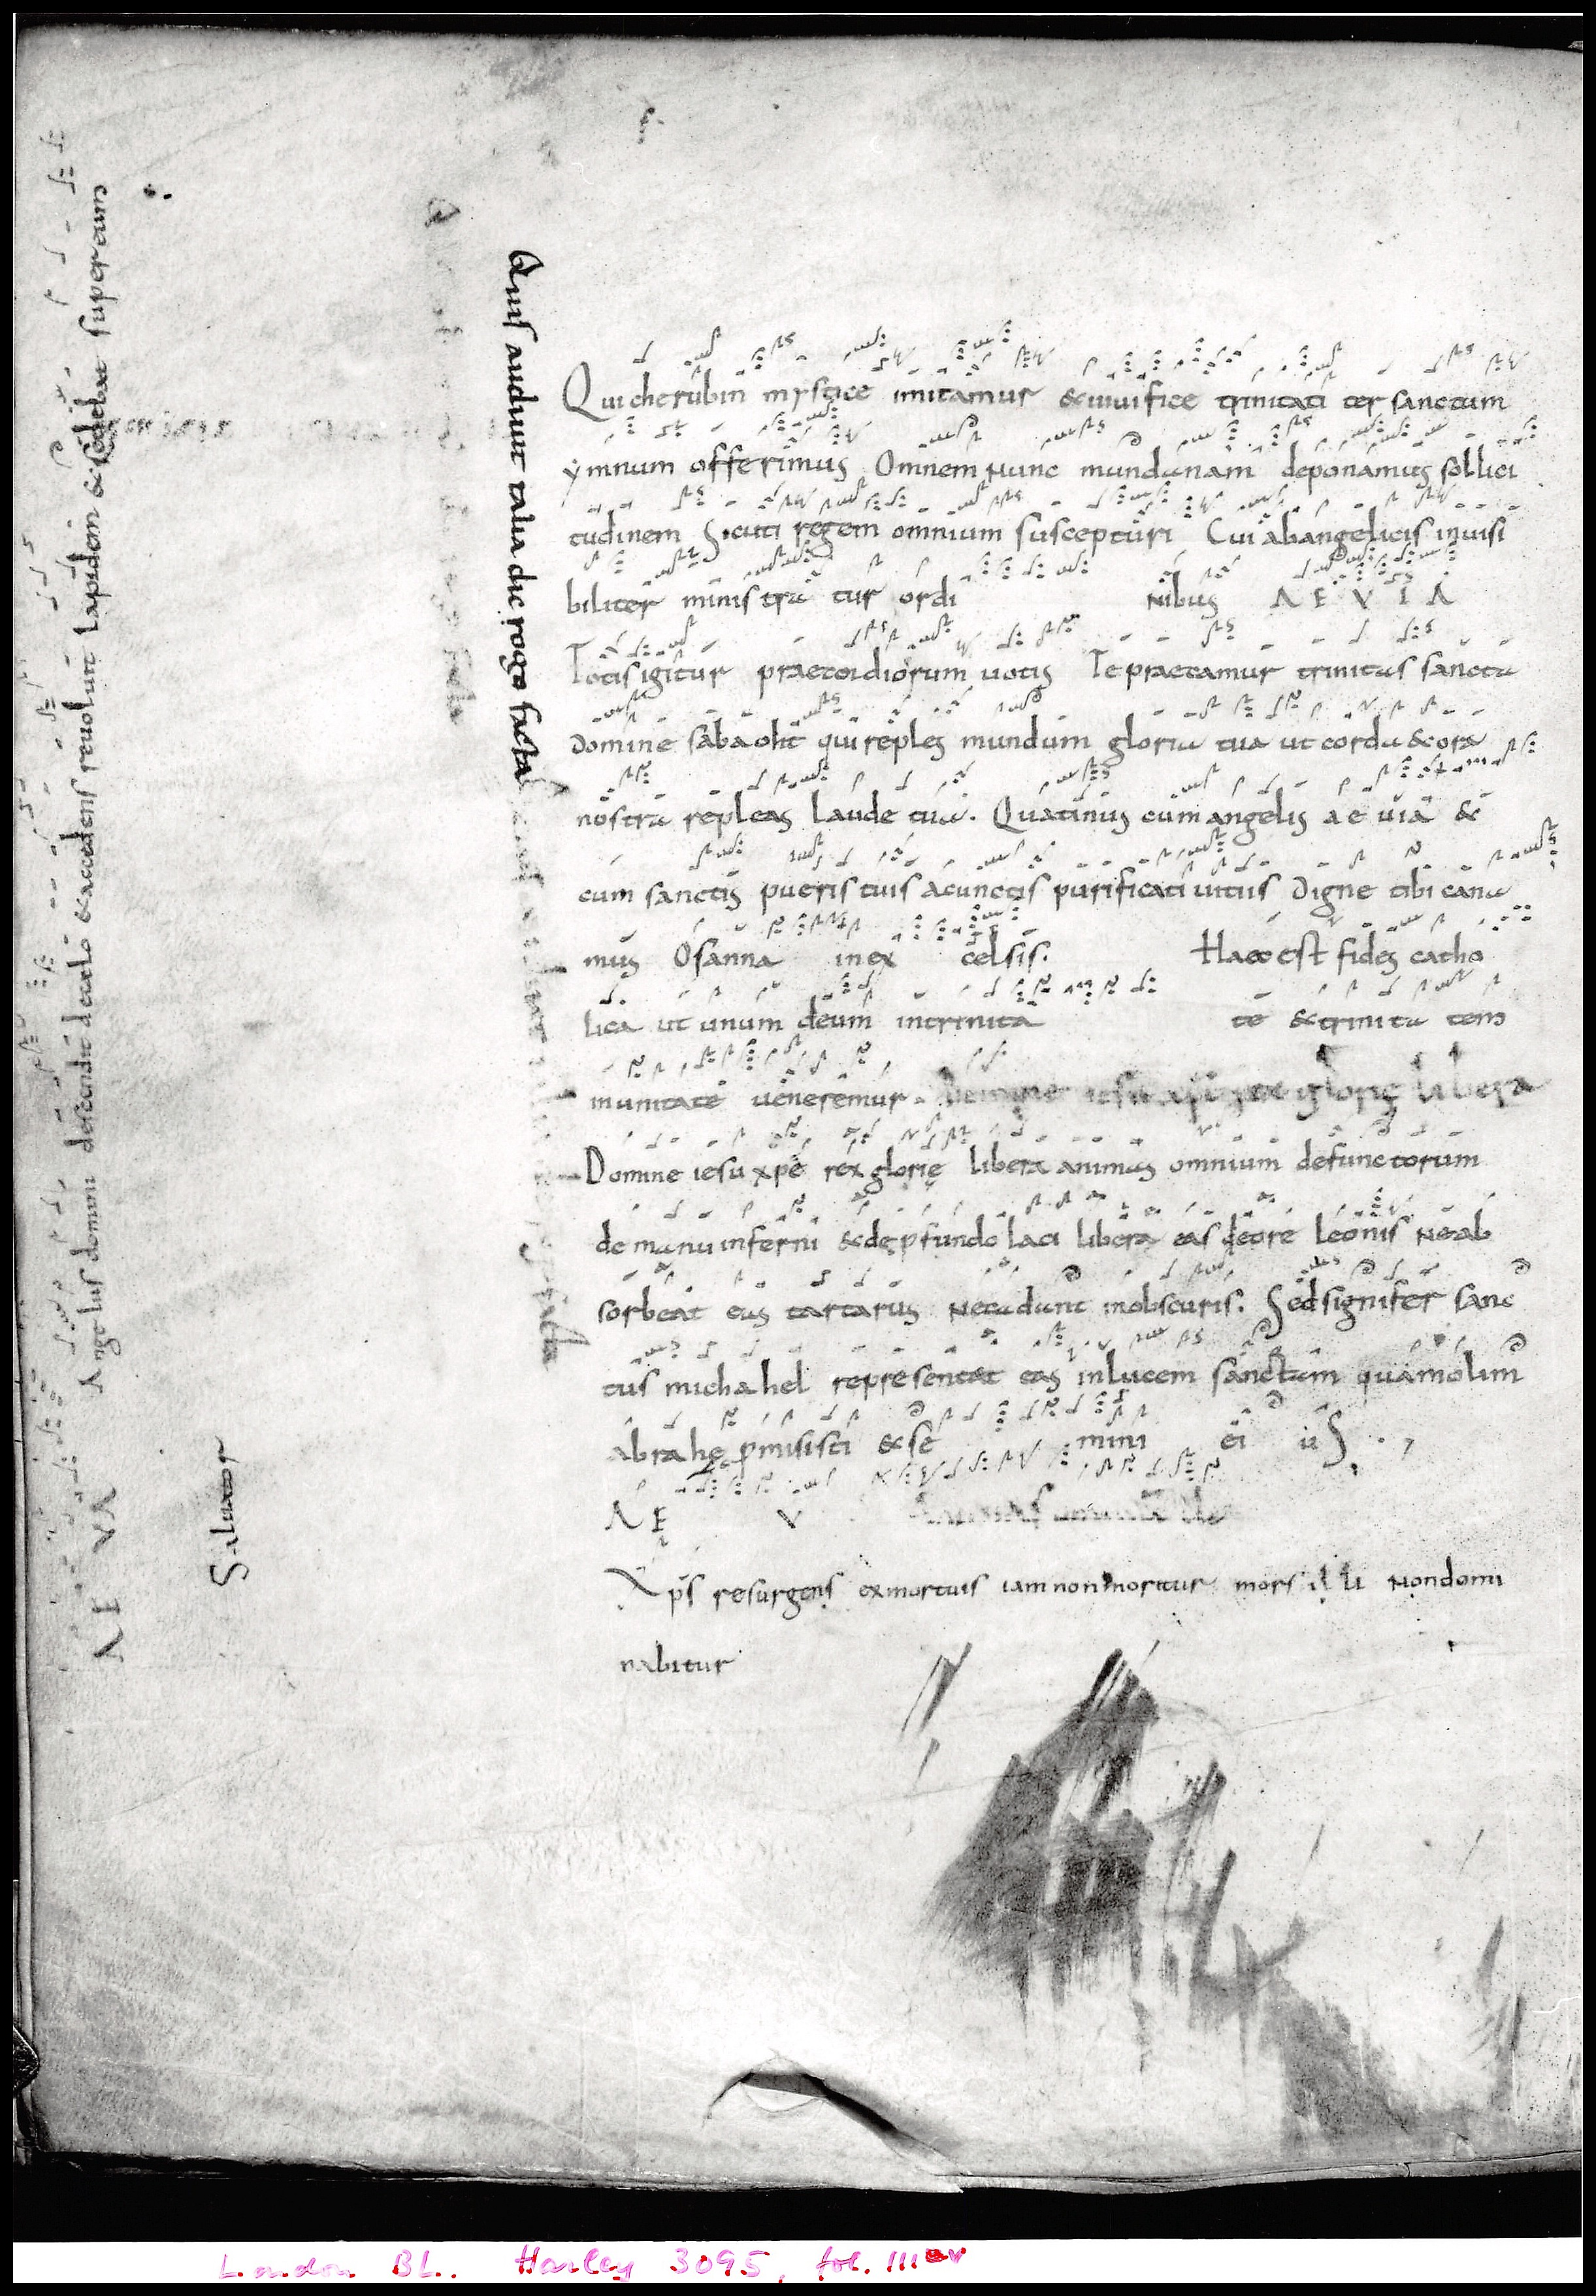 Qui cherubin mystice imitamur & uiuifice trinitati ter sanctum
ymnum offerimus Omnem nunc mundanam deponamus sollici
tudinem Sicuti regem omnium suscepturi Cui ab angelicis inuisi
biliter ministratur ordi nibus A E V I A
Totis igitur praecordiorum uotis Te praecamur trinitas sancta
Domine sabaoht qui reples mundum gloria tua ut corda & ora
nostra repleas laude tua. Quatinus cum angelis a e uia &
cum sanctis pueris tuis a cunctis purificati uitiis Digne tibi cana
mus Osanna in ex celsis. Haec est fides catho
lica ut unum deum in trinita te & trinita tem
in unitate ueneremur. Domine iesu xpe rex glorię libera
Domine iesu xpe rex glorię libera animas omnium defunctorum
de manu inferni & de pfundo laci libera eas de ore leonis Ne ab
sorbeat eas tartarus Ne cadant in obscuris. Sed signifer sanc
tus michahel representet eas in lucem sanctam quam olim
abrahę pmisisti & se mini ei uS
A E V
Xps resurgens ex mortuis iam non moritur mors illi Non domi
nabitur
Quis audiuit talia dic rogo facta
Angelus domini descendit de celo & accedens reuoluit lapidem & sedebat super eum
AE VA
Saluator
London BL. Harley 3095, fol. 111v